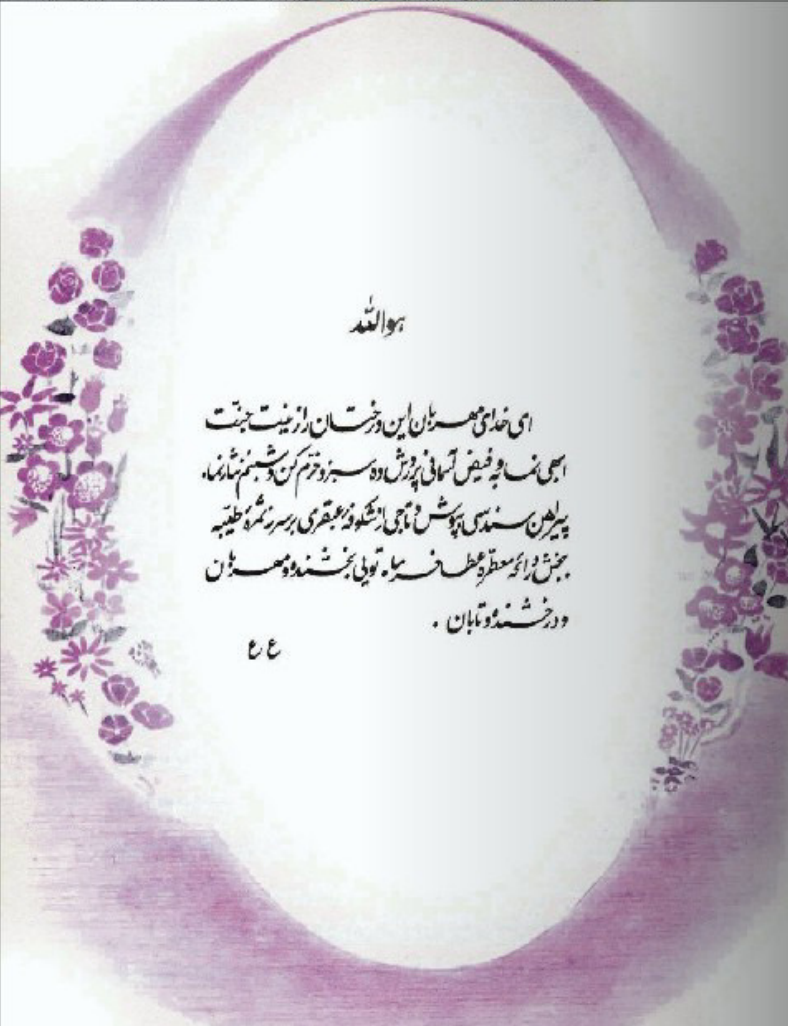 هوالله
ای خدای مهربان این درختان را زینت جنّت
ابهی نما و به فیض آسمانی پرورش ده سبز و خرّم کن و شبنم نثار نما.
پیراهن سندسی بپوش و تاجی از شکوفهٔ عبقری بر سر نه ثمرهٔ طیّبه
ببخش و رائحه معطّره عطا فرما. تویی بخشنده و مهربان
و درخشنده و تابان .
ع ع